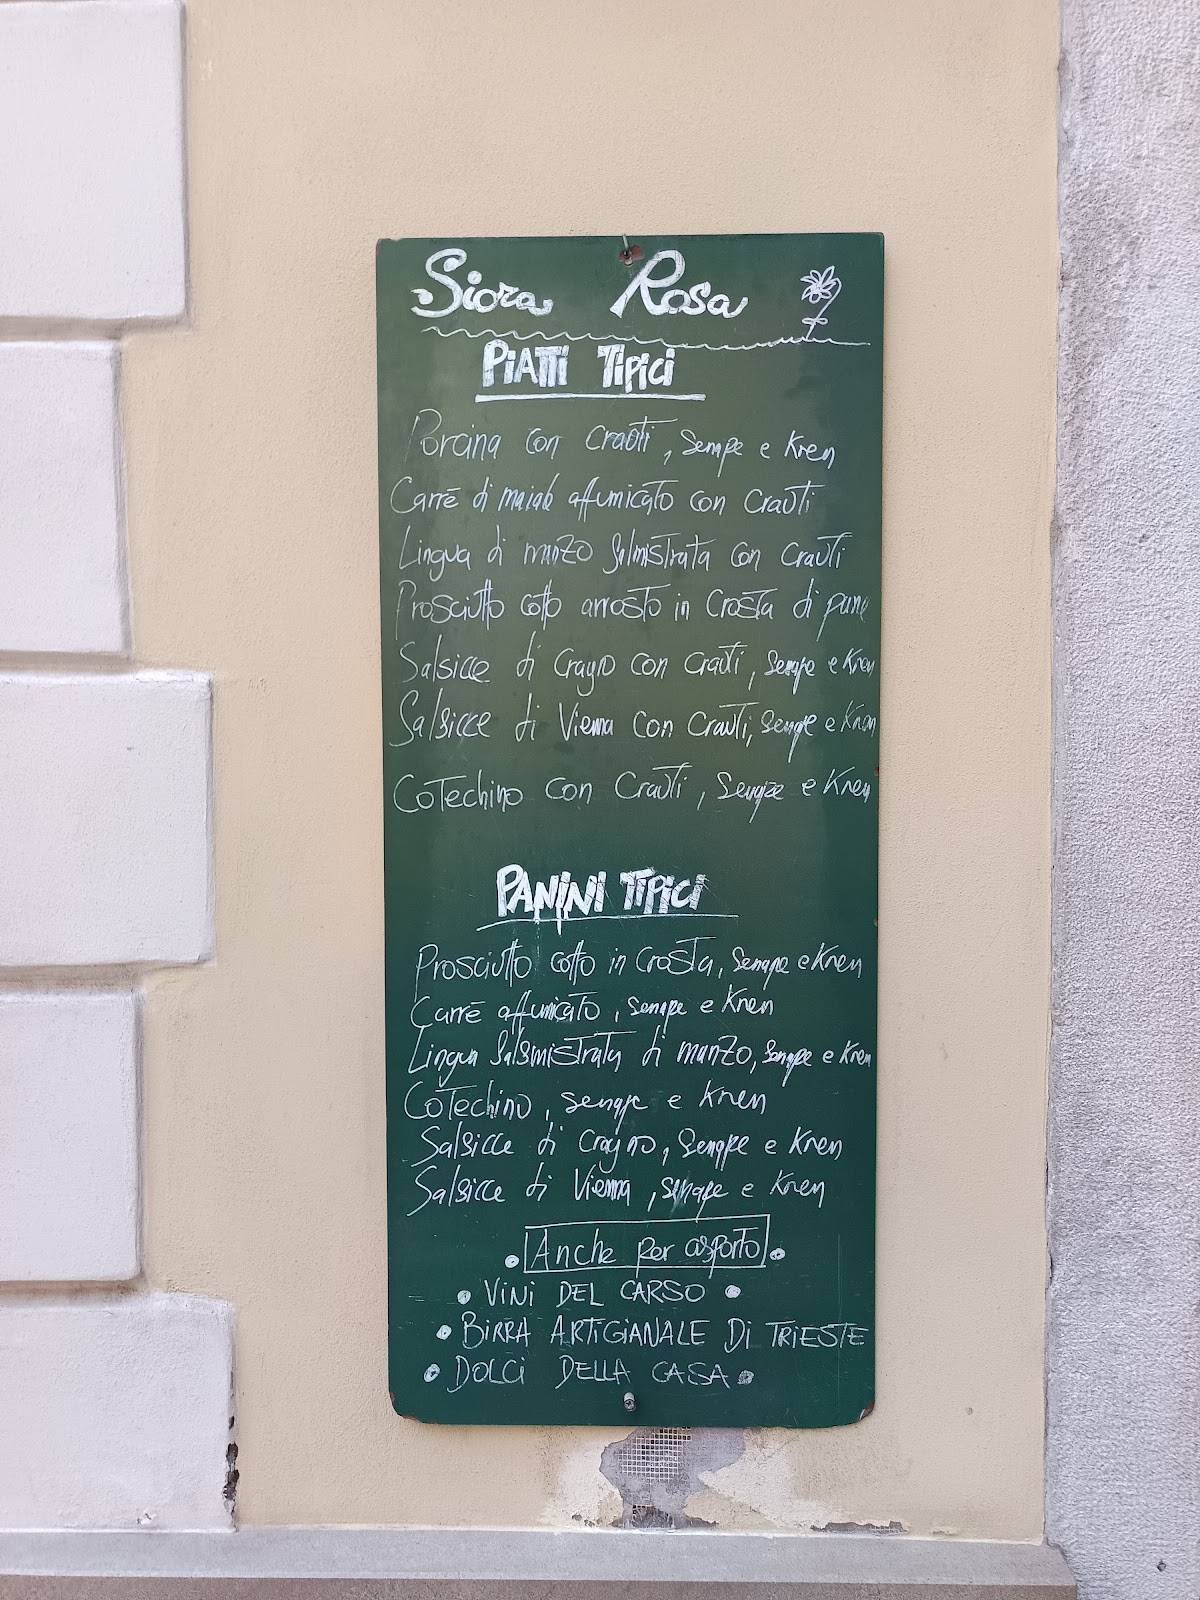 Siora Rosa
PiATTi TiPiCi
Porcina con Crauti, Senape e Kren
Carrè di maiale affumicato con Crauti
Lingua di manzo Salmistrata con Crauti
Prosciutto cotto arrosto in Crosta di pane
Salsicce di Cragno con crauti, Senape e Kren
Salsicce di Vienna con Crauti, Senape e Kren
Cotechino con Crauti, Senape e Kren
PANiNi TiPiCi
Prosciutto cotto in Crosta, Senape e Kren
Carrè affumicato, Senape e Kren
Lingua Salsmistrata di manzo, Senape e Kren
Cotechino, Senape e Kren
Salsicce di Cragno, Senape e Kren
Salsicce di Vienna, Senape e Kren
• Anche per asporto •
• ViNi DEL CARSO •
• BiRRA ARTiGiANALE Di TRiESTE
• DOLCi DELLA CASA •